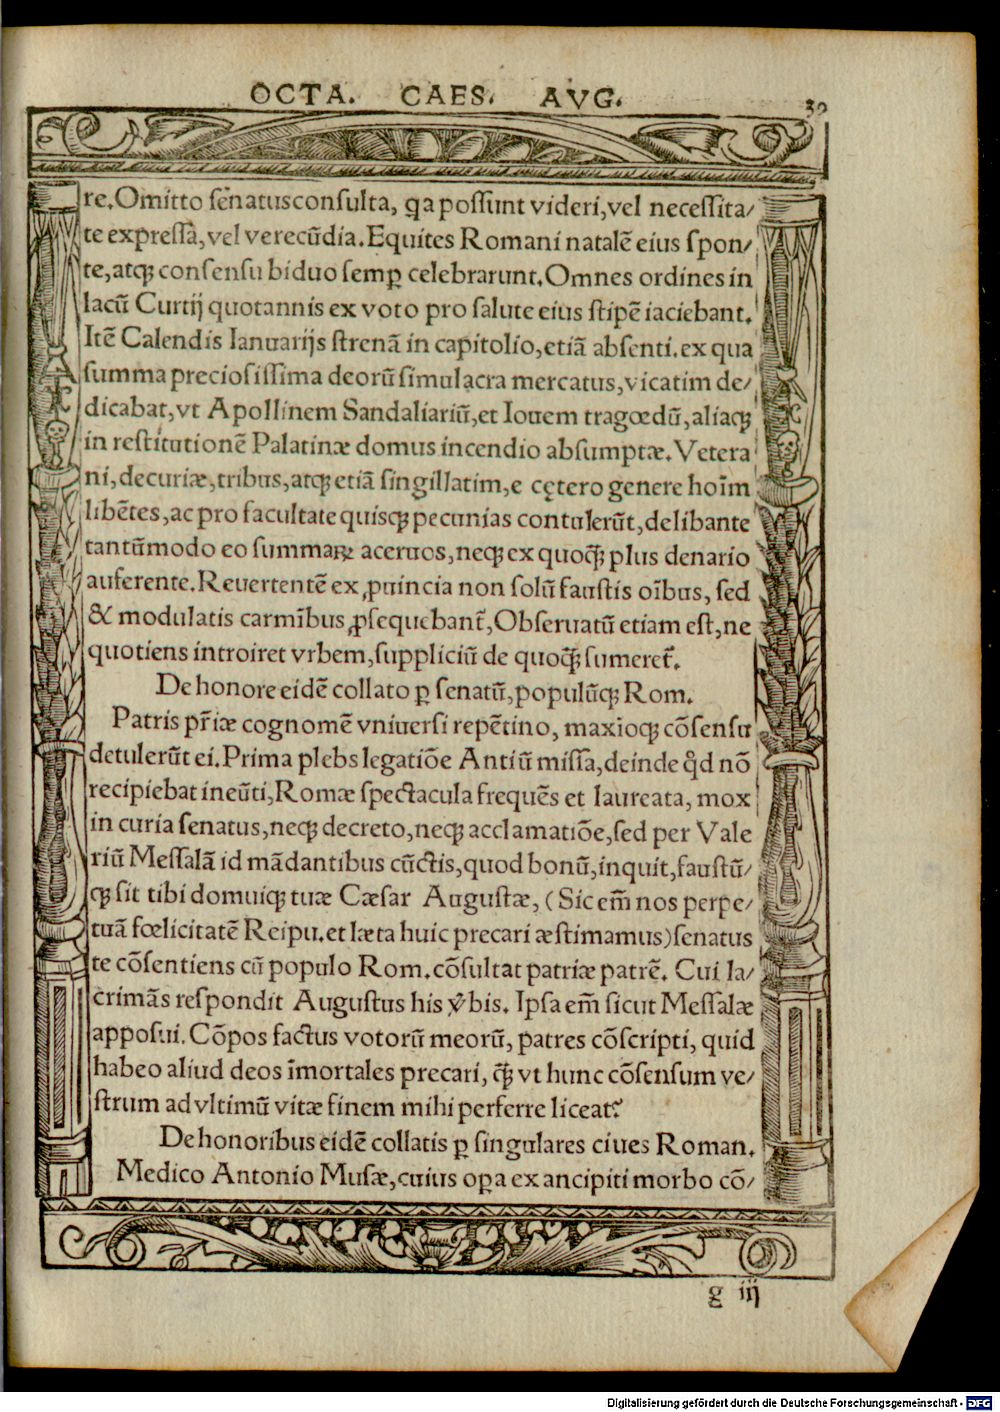 OCTA. CAES. AVG.
30
re. Omitto senatusconsulta, qa possunt videri, vel necessita/
te expressa, vel verecũdia. Equites Romani natalẽ eius spon/
te, atqꝫ consensu biduo semꝑ celebrarunt. Omnes ordines in
lacũ Curtij quotannis ex voto pro salute eius stipẽ iaciebant.
Itẽ Calendis Ianuarijs strenã in capitolio, etiã absenti. ex qua
summa preciosissima deorũ simulacra mercatus, vicatim de/
dicabat, vt Apollinem Sandaliariũ, et Iouem tragœdũ, aliaqꝫ
in restitutionẽ Palatinæ domus incendio absumptæ. Vetera
ni, decuriæ, tribus, atqꝫ etiã singillatim, e cętero genere hoĩm
libẽtes, ac pro facultate quisqꝫ pecunias contulerũt, delibante
tantũmodo eo summaꝝ aceruos, neqꝫ ex quoq̃ꝫ plus denario
auferente. Reuertentẽ ex ꝓuincia non solũ faustis oĩbus, sed
& modulatis carmĩbus ꝓsequebant̃, Obseruatũ etiam est, ne
quotiens introiret vrbem, suppliciũ de quoq̃ꝫ sumeret̃.
De honore eidẽ collato ꝑ senatũ, populũqꝫ Rom.
Patris pr̃iæ cognomẽ vniuersi repẽtino, maxĩoqꝫ cõsensu
detulerũt ei. Prima plebs legatiõe Antiũ missa, deinde qd̃ nõ
recipiebat ineũti, Romæ spectacula frequẽs et laureata, mox
in curia senatus, neqꝫ decreto, neqꝫ acclamatiõe, sed per Vale
riũ Messalã id mãdantibus cũctis, quod bonũ, inquit, faustũ/
qꝫ sit tibi domuiqꝫ tuæ Cæsar Augustæ, (Sic em̃ nos perpe/
tuã fœlicitatẽ Reipu. et læta huic precari æstimamus) senatus
te cõsentiens cũ populo Rom. cõsultat patriæ patrẽ. Cui la/
crimãs respondit Augustus his v̉bis. Ipsa em̃ sicut Messalæ
apposui. Cõpos factus votorũ meorũ, patres cõscripti, quid
habeo aliud deos ĩmortales precari, q̃ꝫ vt hunc cõsensum ve/
strum ad vltimũ vitæ finem mihi perferre liceat?
De honoribus eidẽ collatis ꝑ singulares ciues Roman.
Medico Antonio Musæ, cuius oꝑa ex ancipiti morbo cõ/
g iij
Digitalisierung gefördert durch die Deutsche Forschungsgemeinschaft - DFG